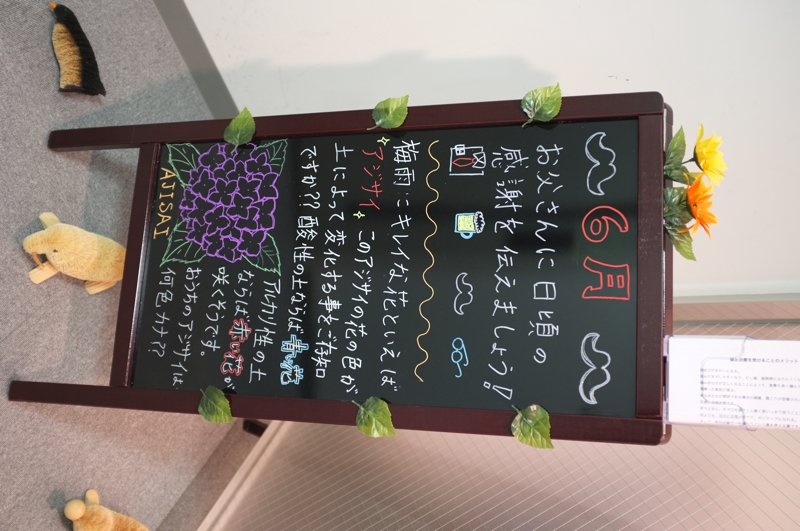 6月
お父さんに日頃の
感謝を伝えましょう!
梅雨にキレイな花といえば
アジサイ このアジサイの花の色が
土によって変化する事をご存知
ですか?? 酸性の土ならば青い花
アルカリ性の土
ならば赤い花が
咲くそうです。
おうちのアジサイは
何色カナ??
AJISAI